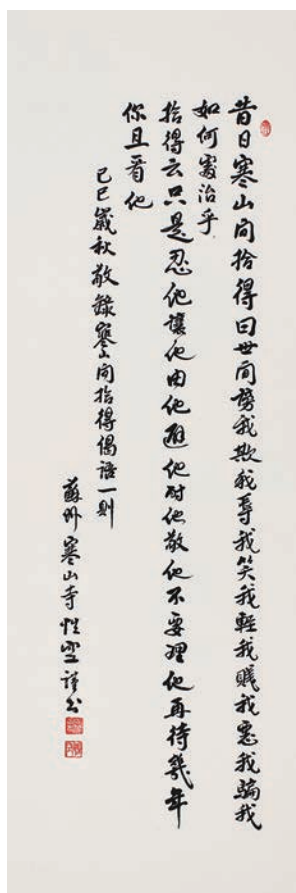 昔日寒山问拾得曰世间謗我欺我辱我笑我輕我賤我惡我騙我
如何處治乎
拾得云只是忍他讓他由他避他耐他敬他不要理他再待幾年
你且看他
己巳歲秋敬錄寒山问拾得偈語一則
蘇州寒山寺性空謹書